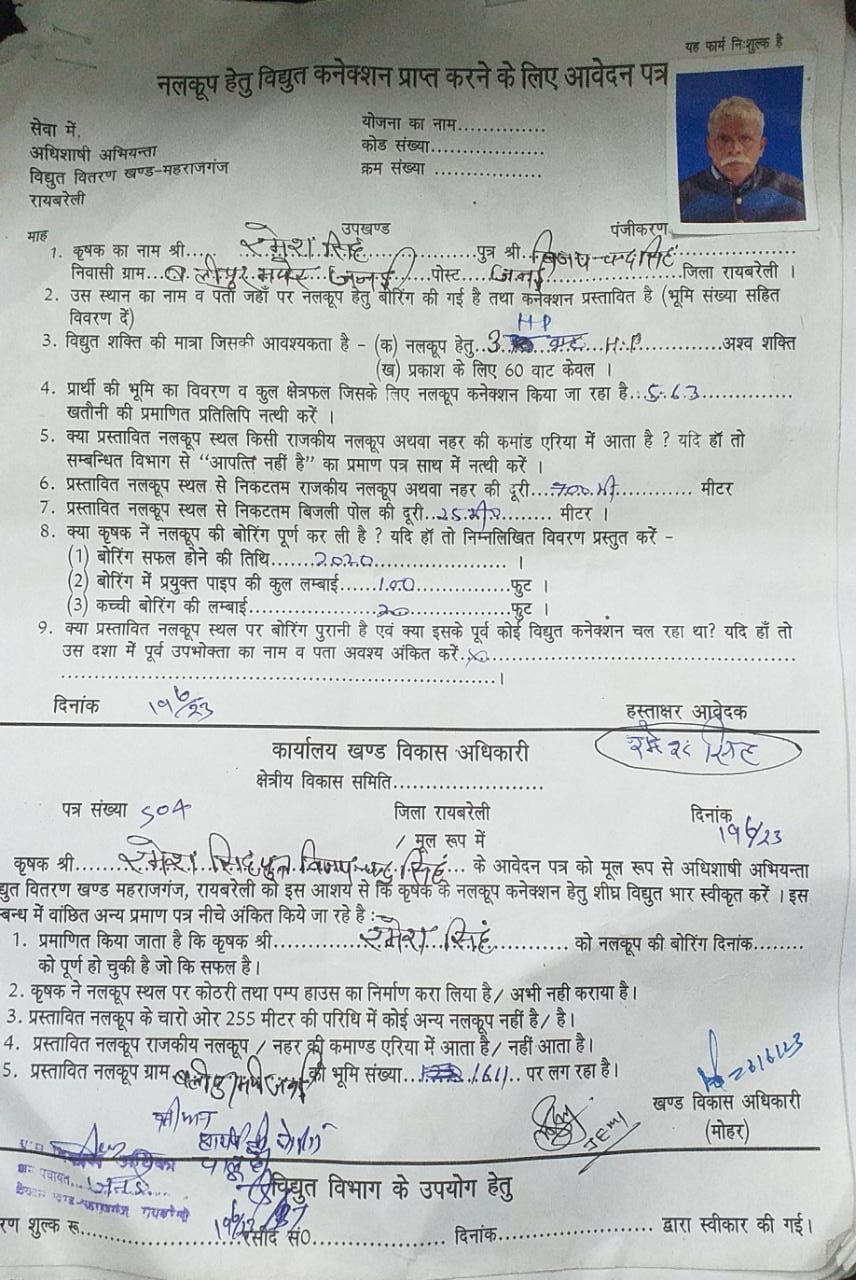 यह फार्म निःशुल्क है
नलकूप हेतु विद्युत कनेक्शन प्राप्त करने के लिए आवेदन पत्र
सेवा में,
अधिशाषी अभियन्ता
विद्युत वितरण खण्ड-महराजगंज
रायबरेली
योजना का नाम..............
कोड संख्या..................
क्रम संख्या .................
माह उपखण्ड पंजीकरण
1. कृषक का नाम श्री.... रमेश सिंह ............पुत्र श्री. विजय चन्द्र सिंह ..............
निवासी ग्राम... जनई पोस्ट जनई ....................जिला रायबरेली ।
2. उस स्थान का नाम व पता जहाँ पर नलकूप हेतु बोरिंग की गई है तथा कनेक्शन प्रस्तावित है (भूमि संख्या सहित
विवरण दें)
H P
3. विद्युत शक्ति की मात्रा जिसकी आवश्यकता है - (क) नलकूप हेतु..3 H.P...............अश्व शक्ति
(ख) प्रकाश के लिए 60 वाट केवल ।
4. प्रार्थी की भूमि का विवरण व कुल क्षेत्रफल जिसके लिए नलकूप कनेक्शन किया जा रहा है...5.63..............
खतौनी की प्रमाणित प्रतिलिपि नत्थी करें ।
5. क्या प्रस्तावित नलकूप स्थल किसी राजकीय नलकूप अथवा नहर की कमांड एरिया में आता है ? यदि हॉ तो
सम्बन्धित विभाग से “आपत्ति नहीं है” का प्रमाण पत्र साथ में नत्थी करें ।
6. प्रस्तावित नलकूप स्थल से निकटतम राजकीय नलकूप अथवा नहर की दूरी...700 मी............ मीटर
7. प्रस्तावित नलकूप स्थल से निकटतम बिजली पोल की दूरी..25 मी०......... मीटर ।
8. क्या कृषक नें नलकूप की बोरिंग पूर्ण कर ली है ? यदि हॉ तो निम्नलिखित विवरण प्रस्तुत करें -
(1) बोरिंग सफल होने की तिथि.......2020........................ ।
(2) बोरिंग में प्रयुक्त पाइप की कुल लम्बाई......100...............फुट ।
(3) कच्ची बोरिंग की लम्बाई....................20................फुट ।
9. क्या प्रस्तावित नलकूप स्थल पर बोरिंग पुरानी है एवं क्या इसके पूर्व कोई विद्युत कनेक्शन चल रहा था? यदि हॉं तो
उस दशा में पूर्व उपभोक्ता का नाम व पता अवश्य अंकित करें.×..............................................
...................................................................।
दिनांक 19/6/23 हस्ताक्षर आवेदक
रमेश सिंह
कार्यालय खण्ड विकास अधिकारी
क्षेत्रीय विकास समिति.......................
पत्र संख्या 504 जिला रायबरेली दिनांक 19/6/23
/ मूल रूप में
कृषक श्री........रमेश सिंह पुत्र विजय चन्द्र सिंह... के आवेदन पत्र को मूल रूप से अधिशाषी अभियन्ता
द्युत वितरण खण्ड महराजगंज, रायबरेली को इस आशय से कि कृषक के नलकूप कनेक्शन हेतु शीघ्र विद्युत भार स्वीकृत करें । इस
बन्ध में वांछित अन्य प्रमाण पत्र नीचे अंकित किये जा रहे है :-
1. प्रमाणित किया जाता है कि कृषक श्री.............रमेश सिंह........... को नलकूप की बोरिंग दिनांक........
को पूर्ण हो चुकी है जो कि सफल है।
2. कृषक ने नलकूप स्थल पर कोठरी तथा पम्प हाउस का निर्माण करा लिया है/ अभी नही कराया है।
3. प्रस्तावित नलकूप के चारो ओर 255 मीटर की परिधि में कोई अन्य नलकूप नहीं है/ है।
4. प्रस्तावित नलकूप राजकीय नलकूप / नहर की कमाण्ड एरिया में आता है/ नहीं आता है।
5. प्रस्तावित नलकूप ग्राम जनई की भूमि संख्या... 1611.. पर लग रहा है।
खण्ड विकास अधिकारी
(मोहर)
विद्युत विभाग के उपयोग हेतु
रण शुल्क रू.....................रसीद सं0................ दिनांक....................... द्वारा स्वीकार की गई।